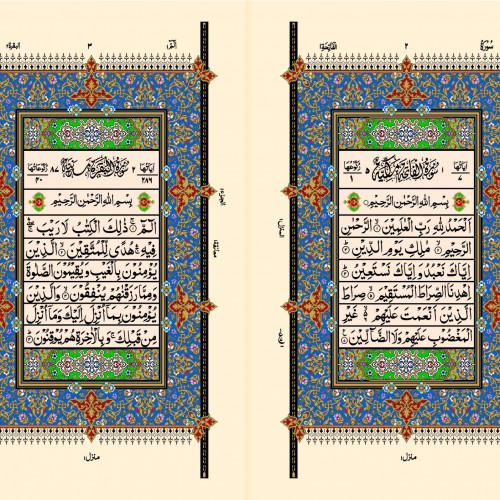 سُوْرَة ٢ اَلْفَاتِحَة
اٰيَاتُهَا ١ سُوْرَةُ الْفَاتِحَةِ مَكِّيَّةٌ رُكُوْعُهَا
٧ ١
بِسْمِ اللّٰهِ الرَّحْمٰنِ الرَّحِيْمِ
اَلْحَمْدُ لِلّٰهِ رَبِّ الْعٰلَمِيْنَ ۝ الرَّحْمٰنِ
الرَّحِيْمِ ۝ مٰلِكِ يَوْمِ الدِّيْنِ ۝
اِيَّاكَ نَعْبُدُ وَاِيَّاكَ نَسْتَعِيْنُ ۝
اِهْدِنَا الصِّرَاطَ الْمُسْتَقِيْمَ ۝ صِرَاطَ
الَّذِيْنَ اَنْعَمْتَ عَلَيْهِمْ ۝ غَيْرِ
الْمَغْضُوْبِ عَلَيْهِمْ وَلَا الضَّآلِّيْنَ ۝
منزل ١
الٓمّٓ ١ ٣ البقرة ٢
اٰيَاتُهَا ٢ سُوْرَةُ الْبَقَرَةِ مَدَنِيَّةٌ ٨٧ رُكُوْعَاتُهَا
٢٨٦ ٤٠
بِسْمِ اللّٰهِ الرَّحْمٰنِ الرَّحِيْمِ
الٓمّٓ ۝ ذٰلِكَ الْكِتٰبُ لَا رَيْبَ
فِيْهِ هُدًى لِّلْمُتَّقِيْنَ ۝ الَّذِيْنَ
يُؤْمِنُوْنَ بِالْغَيْبِ وَيُقِيْمُوْنَ الصَّلٰوةَ
وَمِمَّا رَزَقْنٰهُمْ يُنْفِقُوْنَ ۝ وَالَّذِيْنَ
يُؤْمِنُوْنَ بِمَآ اُنْزِلَ اِلَيْكَ وَمَآ اُنْزِلَ
مِنْ قَبْلِكَ وَبِالْاٰخِرَةِ هُمْ يُوْقِنُوْنَ ۝
منزل ١